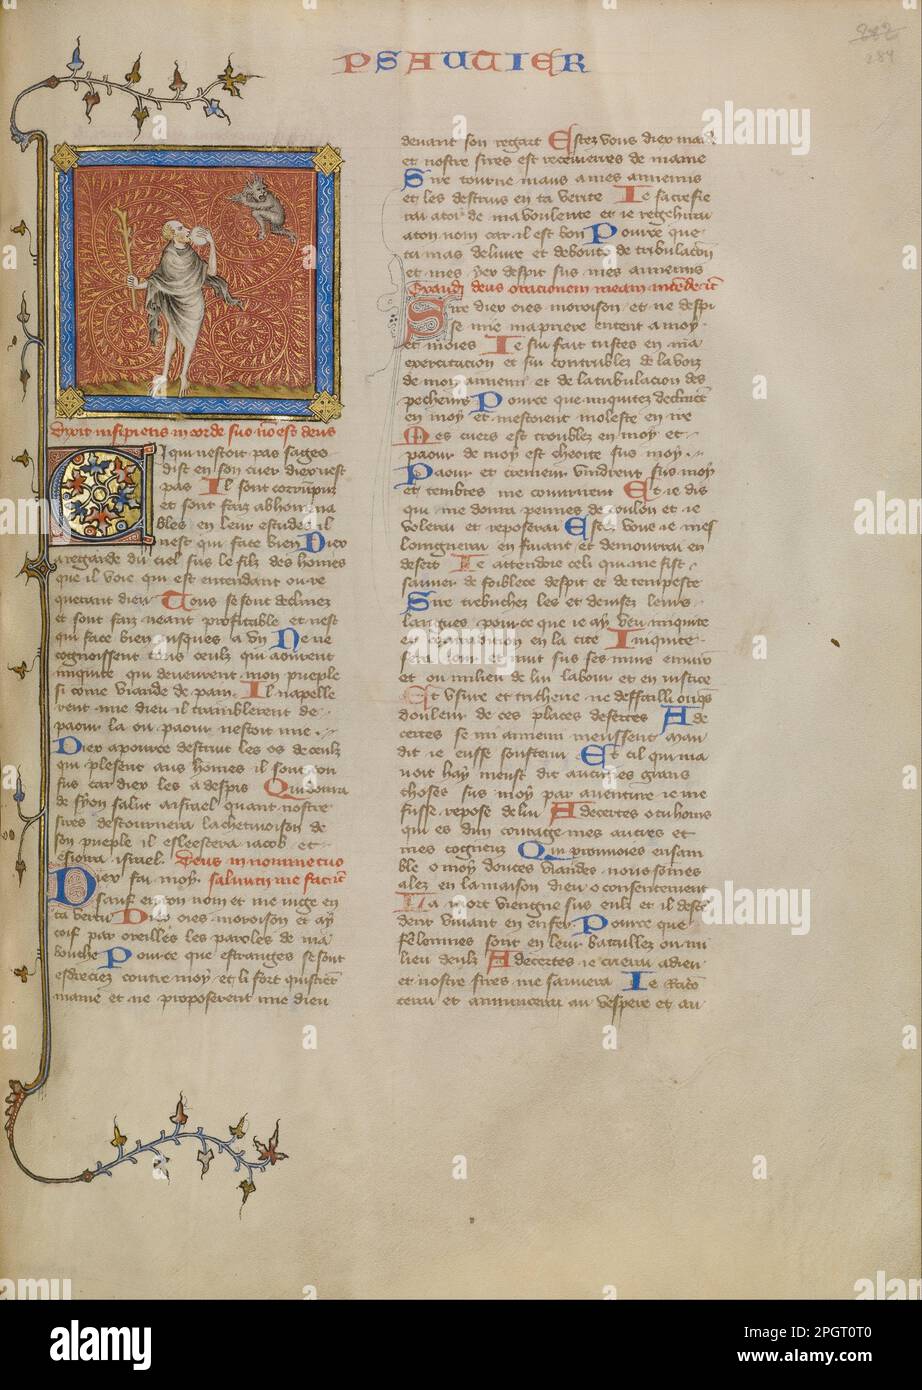 PSAUTIER
284
Dixit insipiens in corde suo non est deus
Cil qui nestoit pas sages
dist en son cuer diex nest
pas Il sont corrumpuz
et sont faiz abhomina
bles en leur estudes il
nest qui face bien Diex
regarde du ciel sus le filz des homes
que il voie qui est entendant ou re
querant dieu Tous se sont declinez
et sont faiz neant profitable et nest
qui face bien jusques a un Ne ne
cognoissent tous ceulz qui aourent
iniquite qui deveurent mon pueple
si come viande de pain Il napelle
rent mie dieu il tramblerent de
paour la ou paour nestoit mie
Diex apource destruit les os de ceulz
qui plesent aus homes il sont con
fus car diex les a despis Qui donra
de syon salut a israel quant nostre
sires destournera la chetivoison de
son pueple il esleescera iacob et
esioira israel. Deus in nomine tuo
Diex fai moy salvum me fac
sauf en ton nom et me iuge en
ta vertu Diex oies moroison et ay
toif par oreilles les paroles de ma
bouche Pource que estranges se sont
esdreciez contre moy et li fort quistrent
mame et ne proposerent mie dieu
devant son regart Estez vous diex maide
et nostre sires est receverres de mame
Sire tourne maus a mes annemis
et les destruis en ta verite Ie sacrefie
rai a toi de ma voulente et ie regehirai
a ton nom car il est bon Pource que
ta mas delivre et deboute de tribulacion
et mes yex despit sus mes annemis
Exaudi deus orationem meam
Sire diex oies moroison et ne despi
se mie ma priere entent a moy
et moies Ie sui fait tristes en ma
exercitacion et sui contriblez de la voiz
de mon annemi et de la tribulacion des
pecheurs Pource que iniquitez declinerent
en moy et mestoient moleste en ire
Mes cuers est troublez en moy et
paour de mort cheoite sus moy
Paour et cremeur vindrent sus moy
et tenebres me couvrirent Et ie dis
qui me donra pennes de coulon et ie
volerai et reposerai Estez vous ie mes
loingnerai en fuiant et demourrai en
desert Ie attendoie celi qui me fist
sauver de foiblece despit et de tempeste
Sire trebuchez les et devisez leurs
langues pource que ie ay veu iniquite
et contradition en la cite Iniquite
sera iour et nuit sus ses murs environ
et ou milieu de lui labour et en iustice
Et usure et tricherie ne deffailli onques
douleur de ces places desertes A de
certes se mi annemi meussent mau
dit ie eusse soustenu Et cil qui ma
voit hay meust dit aucunes grans
choses sus moy par aventure ie me
fusse repose de lui Adecertes o tu homs
qui es dun courage mes autres et
mes cogneuz Qui prennoies ensam
ble o moy douces viandes nous soines
alez en la maison dieu o consentement
La mort viengne sus eulz et il descen
dent vivant en enfer Pource que
felonnies sont en leur batailles ou mi
lieu deulz Adecertes ie crierai a dieu
et nostre sires me sauvera Ie racon
terai et annuncerai au vespere et au
alamy
Image ID: 2PGT0T0
www.alamy.com